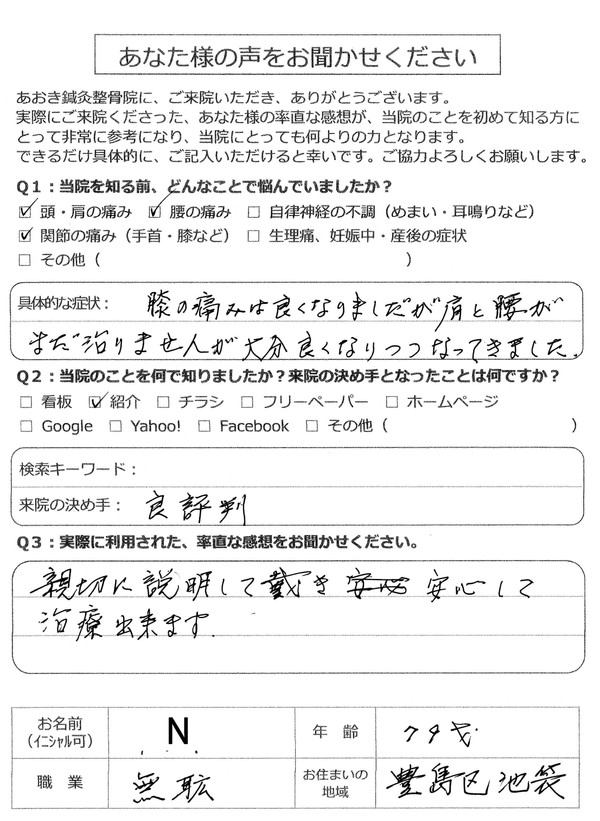 あなた様の声をお聞かせください
あおき鍼灸整骨院に、ご来院いただき、ありがとうございます。
実際にご来院くださった、あなた様の率直な感想が、当院のことを初めて知る方に
とって非常に参考になり、当院にとっても何よりの力となります。
できるだけ具体的に、ご記入いただけると幸いです。ご協力よろしくお願いします。
Q1：当院を知る前、どんなことで悩んでいましたか？
☑ 頭・肩の痛み ☑ 腰の痛み □ 自律神経の不調（めまい・耳鳴りなど）
☑ 関節の痛み（手首・膝など） □ 生理痛、妊娠中・産後の症状
□ その他（ ）
具体的な症状： 膝の痛みは良くなりましだが肩と腰が
まだ治りませんが大分良くなりつつなってきました。
Q2：当院のことを何で知りましたか？来院の決め手となったことは何ですか？
□ 看板 ☑ 紹介 □ チラシ □ フリーペーパー □ ホームページ
□ Google □ Yahoo! □ Facebook □ その他（ ）
検索キーワード：
来院の決め手： 良評判
Q3：実際に利用された、率直な感想をお聞かせください。
親切に説明して戴き 安心して
治療出来ます.
お名前
（イニシャル可） N 年 齢 74才
職 業 無 お住まいの
地域 豊島区池袋